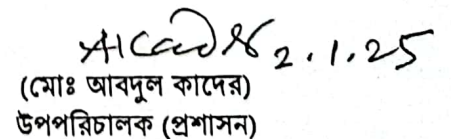 2.1.25
(মোঃ আবদুল কাদের)
উপপরিচালক (প্রশাসন)